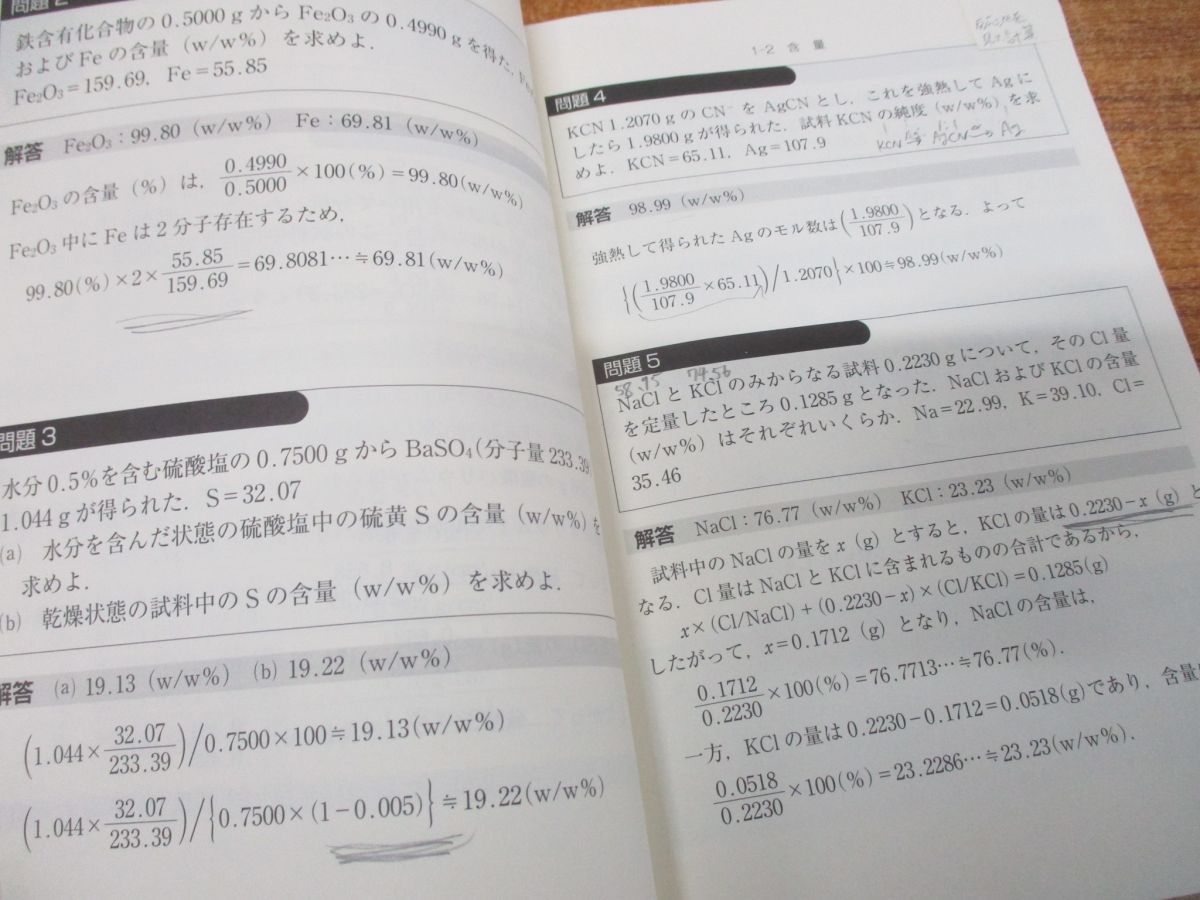 問題2
鉄含有化合物の0.5000gからFe₂O₃の0.4990gを得た.
およびFeの含量(w/w%)を求めよ.
Fe₂O₃=159.69, Fe=55.85
解答 Fe₂O₃:99.80 (w/w%) Fe:69.81 (w/w%)
Fe₂O₃の含量(%)は, 0.4990/0.5000×100(%)=99.80(w/w%)
Fe₂O₃中にFeは2分子存在するため,
99.80(%)×2×55.85/159.69=69.8081…≒69.81(w/w%)
問題3
水分0.5%を含む硫酸塩の0.7500gからBaSO₄(分子量233.39
1.044gが得られた. S=32.07
(a) 水分を含んだ状態の硫酸塩中の硫黄Sの含量(w/w%)を
求めよ.
(b) 乾燥状態の試料中のSの含量(w/w%)を求めよ.
解答 (a) 19.13 (w/w%) (b) 19.22 (w/w%)
(1.044×32.07/233.39)/0.7500×100≒19.13(w/w%)
(1.044×32.07/233.39)/{0.7500×(1-0.005)}≒19.22(w/w%)
1-2 含量
問題4
KCN 1.2070gのCN⁻をAgCNとし,これを強熱してAgに
したら1.9800gが得られた.試料KCNの純度(w/w%)を求
めよ. KCN=65.11, Ag=107.9
KCN AgCN Ag
解答 98.99 (w/w%)
強熱して得られたAgのモル数は(1.9800/107.9)となる.よって
{(1.9800/107.9×65.11)/1.2070}×100≒98.99(w/w%)
問題5
58.45 74.56
NaClとKClのみからなる試料0.2230gについて,そのCl量
を定量したところ0.1285gとなった.NaClおよびKClの含量
(w/w%)はそれぞれいくらか.Na=22.99, K=39.10, Cl=
35.46
解答 NaCl:76.77 (w/w%) KCl:23.23 (w/w%)
試料中のNaClの量をx(g)とすると,KClの量は0.2230-x(g)と
なる.Cl量はNaClとKClに含まれるものの合計であるから,
x×(Cl/NaCl)+(0.2230-x)×(Cl/KCl)=0.1285(g)
したがって,x=0.1712(g)となり,NaClの含量は,
0.1712/0.2230×100(%)=76.7713…≒76.77(%).
一方,KClの量は0.2230-0.1712=0.0518(g)であり,含量
0.0518/0.2230×100(%)=23.2286…≒23.23(w/w%).